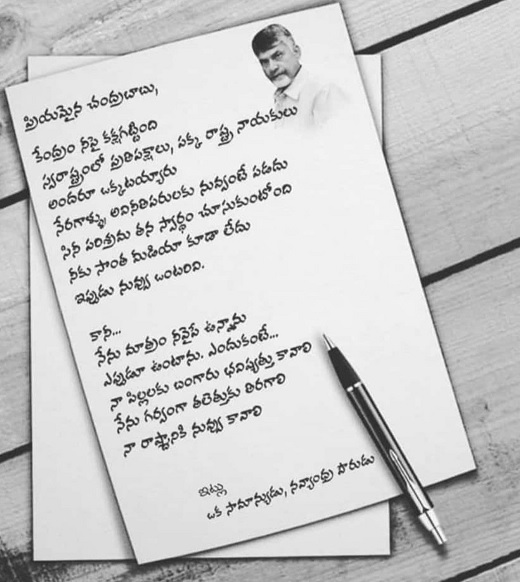 ప్రియమైన చంద్రబాబు,
కేంద్రం నీపై కక్షగట్టింది
స్వరాష్ట్రంలో ప్రతిపక్షాలు, పక్క రాష్ట్ర నాయకులు
అందరూ ఒక్కటయ్యారు
నేరగాళ్ళు, అవినీతిపరులకు నువ్వంటే పడదు
సినీ పరిశ్రమ తన స్వార్థం చూసుకుంటోంది
నీకు సొంత మీడియా కూడా లేదు
ఇప్పుడు నువ్వు ఒంటరివి.
కానీ...
నేను మాత్రం నీవైపే ఉన్నాను
ఎప్పుడూ ఉంటాను. ఎందుకంటే...
నా పిల్లలకు బంగారు భవిష్యత్తు కావాలి
నేను గర్వంగా తలెత్తుకు తిరగాలి
నా రాష్ట్రానికి నువ్వు కావాలి
ఇట్లు
ఒక సామాన్యుడు, నవ్యాంధ్ర పౌరుడు